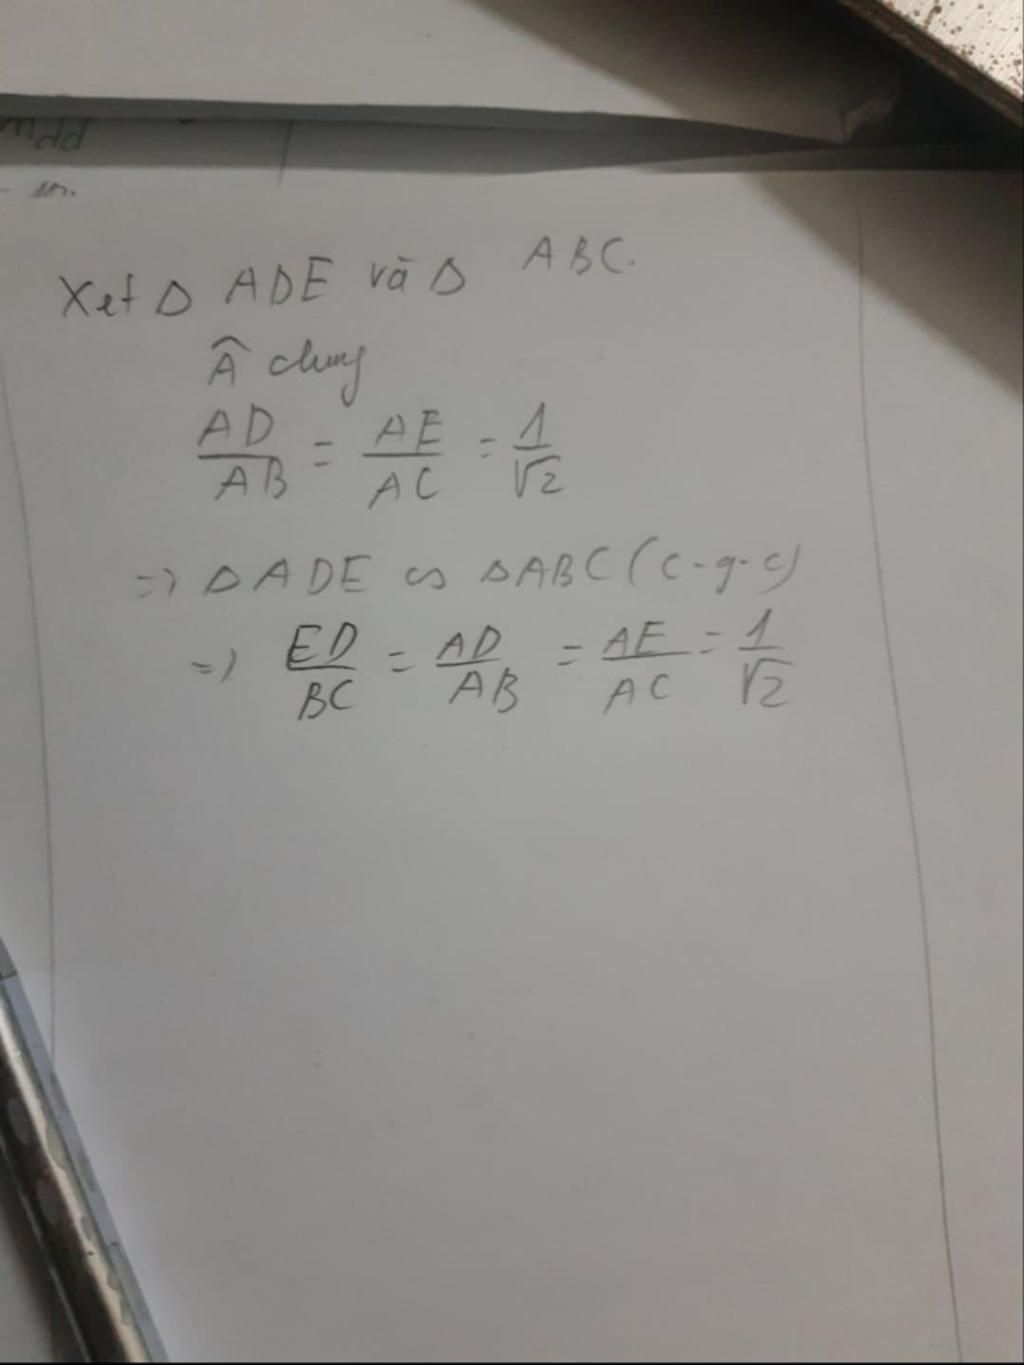 Xet Δ ADE và Δ ABC.
Â chung
AD/AB = AE/AC = 1/√2
=> ΔADE ∽ ΔABC (c-g-c)
=> ED/BC = AD/AB = AE/AC = 1/√2